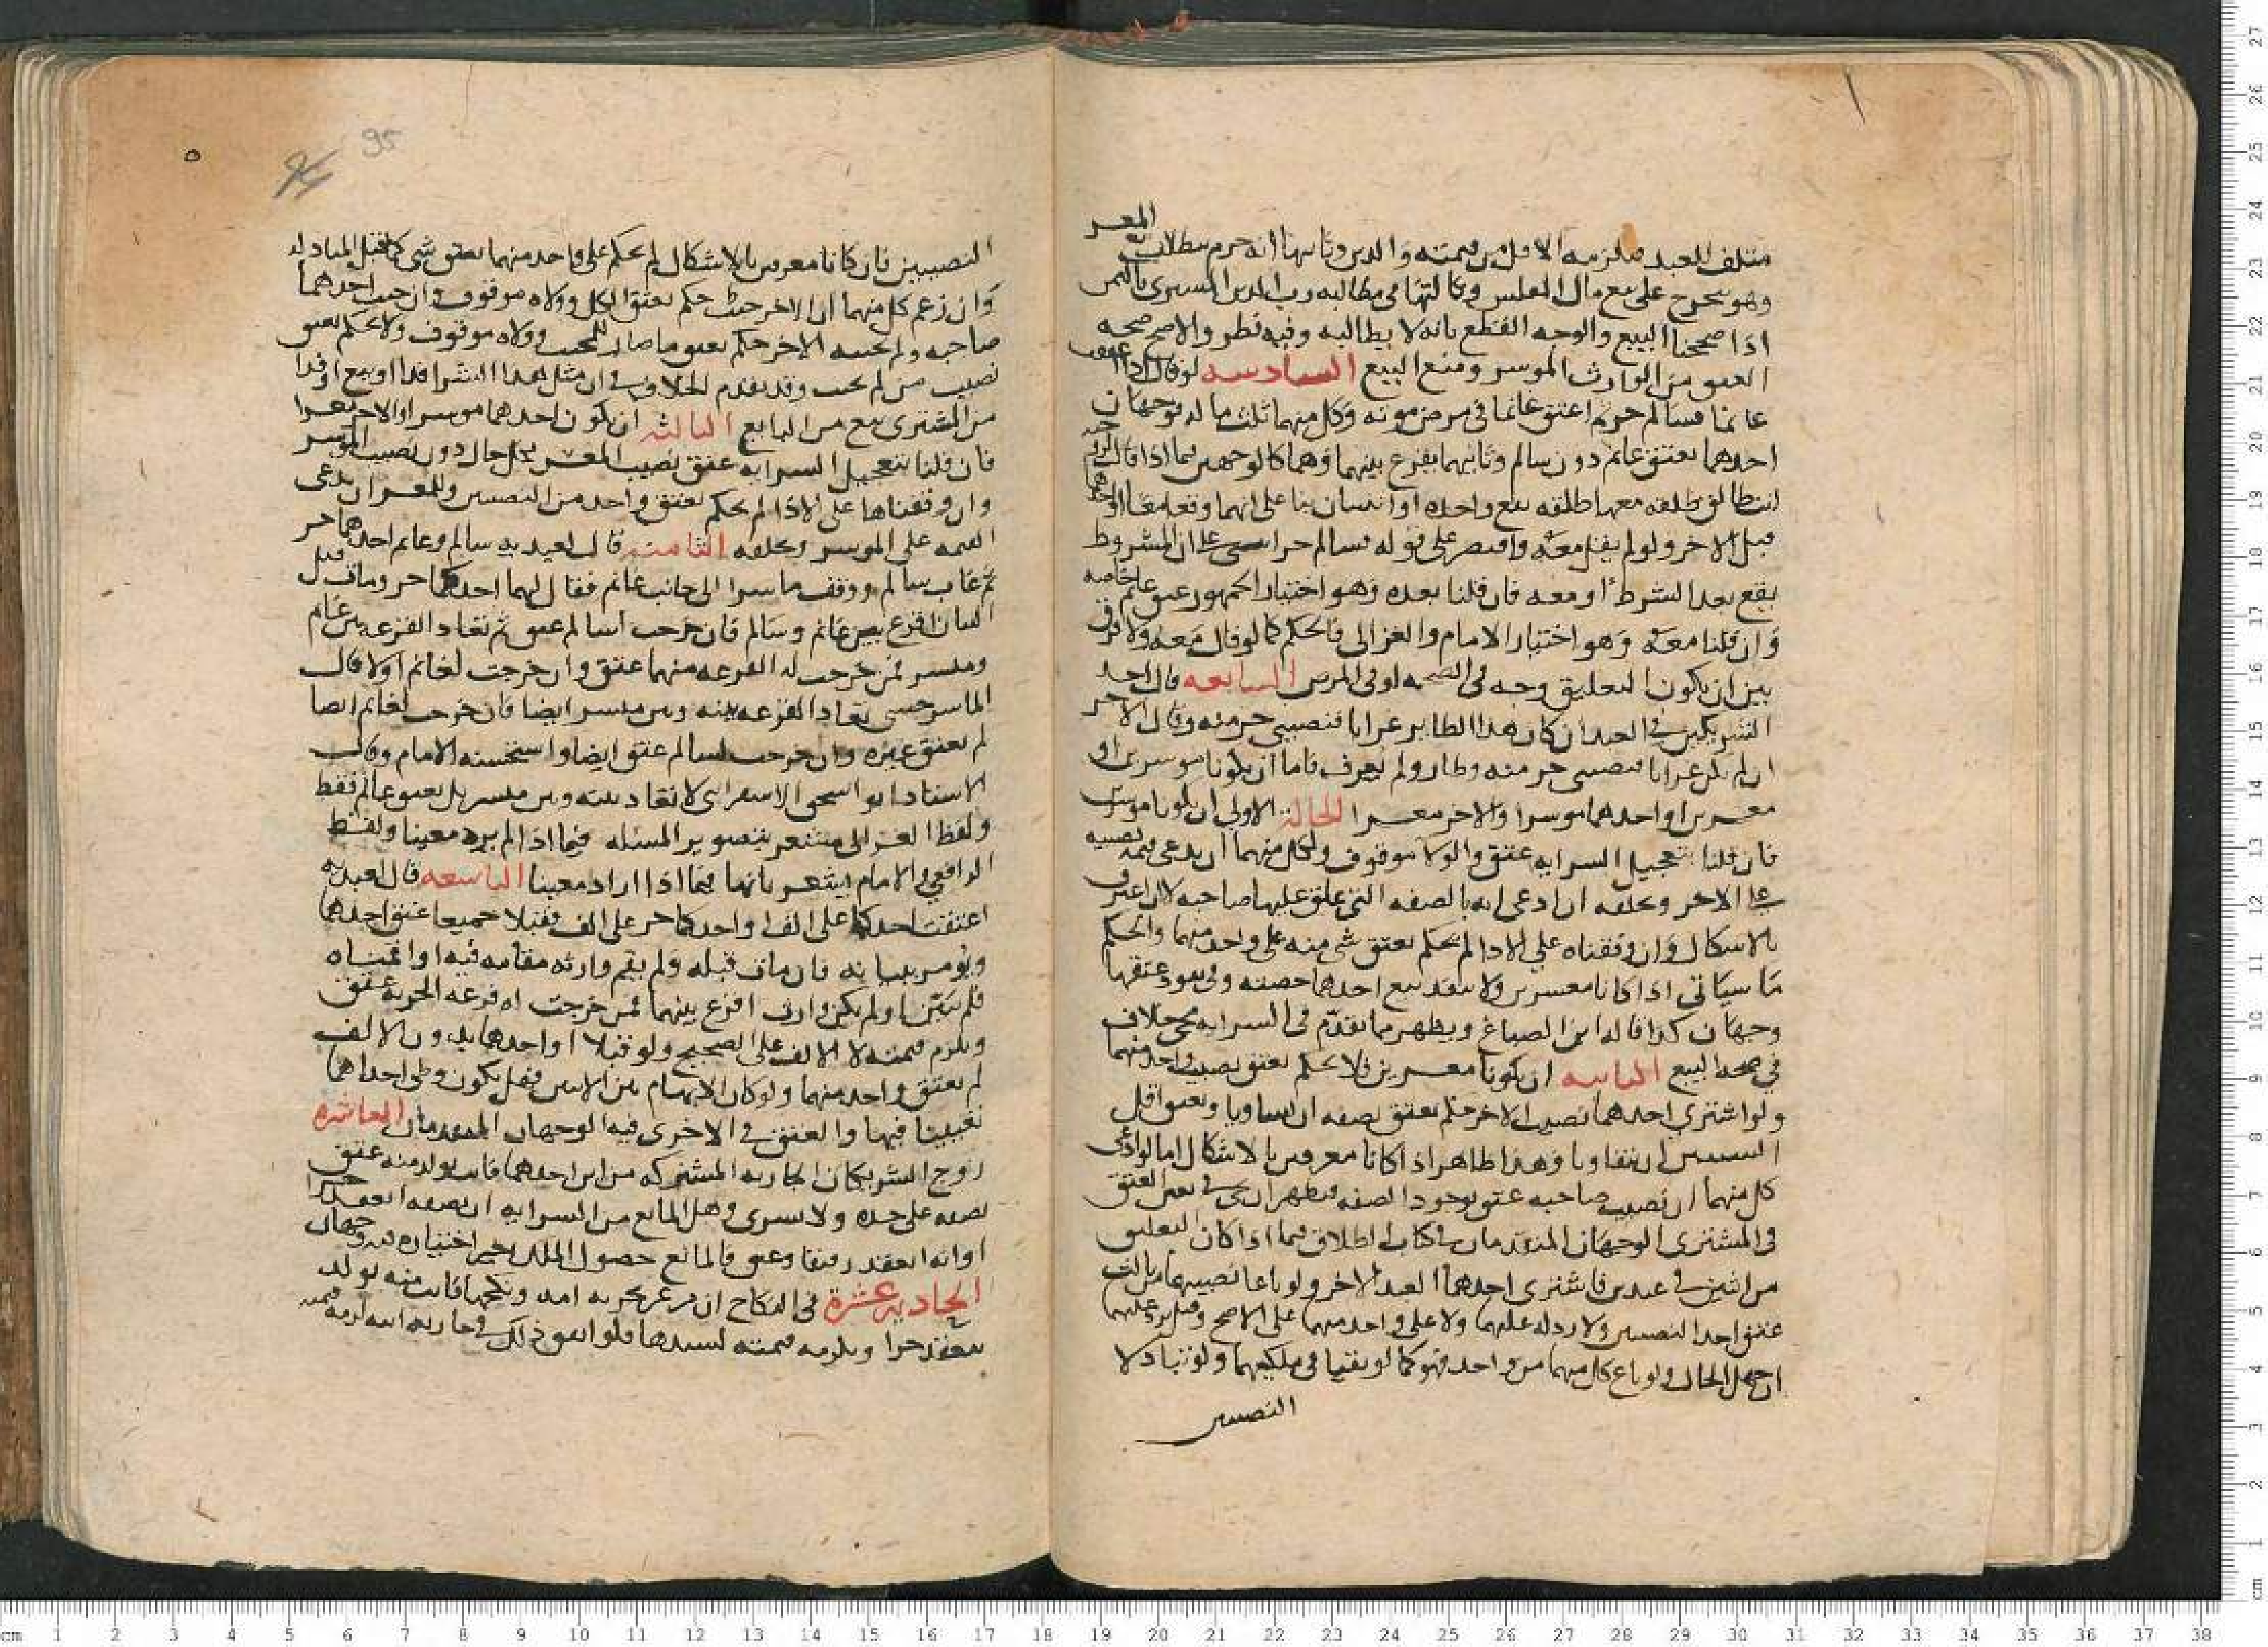 متلف للعبد فيلزمه الاقل من قيمته والدين وثانيها انه حرم بطلان
وهو مخرج على بيع مال المفلس وثالثها في مطالبه رب الدين المشترى بالثمن
اذا صححنا البيع والوجه القطع بانه لا يطالبه وفيه نظر والاصح صحه
العتق من الوارث الموسر ومنع البيع السادسه لو قال اذا اعتقت
غانما فسالم حر ثم اعتق غانما في مرض موته وكل منهما ثلث ماله فوجهان
احدهما يعتق غانم دون سالم وثانيهما يقرع بينهما وهما كالوجهين فيما اذا قال
انت طالق طلقه معها طلقه يقع واحده او اثنتان بنا على انهما وقعا معا او احدهما
قبل الاخر ولو لم يقل معه واقتصر على قوله فسالم حر انبنى على ان المشروط
يقع بعد الشرط او معه فان قلنا بعده وهو اختيار الجمهور عتق غانم خاصه
وان قلنا معه وهو اختيار الامام والغزالى فالحكم كما لو قال معه ولا فرق
بين ان يكون التعليق وجد في الصحه او في المرض السابعه قال احد
الشريكين في العبد ان كان هذا الطاير غرابا فنصيبي حر منه وقال الاخر
ان لم يكن غرابا فنصيبى حر منه وطار ولم يعرف فاما ان يكونا موسرين او
معسرين او احدهما موسرا والاخر معسرا الحالة الاولى ان يكونا موسرين
فان قلنا بتعجيل السرايه عتق والولا موقوف ولكل منهما ان يدعى قيمه نصيبه
على الاخر ويحلفه ان ادعى انه بالصفه التى علق عليها صاحبه لا ان اعترف
بالاشكال وان وقفناه على الادا لم يحكم بعتق شى منه على واحد منهما والحكم
ما سياتي اذا كانا معسرين ولا ينفذ بيع احدهما حصته وفى نفوذ عتقها
وجهان كذا قاله ابن الصباغ ويظهر مما تقدم في السرايه مجى خلاف
في صحه البيع الثانيه ان يكونا معسرين فلا يحكم بعتق نصيب واحد منهما
ولو اشترى احدهما نصيب الاخر حكم بعتق نصفه ان تساويا وبعتق اقل
النصيبين ان تفاوتا وهذا ظاهر اذا كانا معرفين بالاشكال اما لو ادعى
كل منهما ان نصيب صاحبه عتق بوجود الصفه فيظهر ان في تعين العتق
فى المشترى الوجهان المتقدمان في كتاب الطلاق فيما اذا كان التعليق
من اثنين في عبدين فاشترى احدهما العبد الاخر ولو باعا نصيبيهما من ثالث
عتق احد النصيبين ولا رد له عليهما ولا على واحد منهما على الاصح وقيل يرد عليهما
ان جهل الحال ولو باع كل منهما من واحد فهو كما لو بقيا في ملكيهما ولو تبادلا
النصيبين
95
النصيبين فان كانا معرفين بالاشكال لم يحكم على واحد منهما بعتق شى كما قبل المبادله
وان زعم كل منهما ان الاخر حنث حكم بعتق الكل وولاه موقوف وان حنث احدهما
صاحبه ولم يحنثه الاخر حكم بعتق ما صار للمحنث وولاه موقوف ولا يحكم بعتق
نصيب من لم يحنث وقد تقدم الخلاف في ان مثل هذا الشرا فدا او بيع او فدا
من المشترى بيع من البايع الثالثه ان يكون احدهما موسرا والاخر معسرا
فان قلنا بتعجيل السرايه عتق نصيب المعسر بكل حال دون نصيب الموسر
وان وقفناها على الادا لم يحكم بعتق واحد من النصيبين وللمعسر ان يدعى
القيمه على الموسر ويحلفه الثامنه قال لعبديه سالم وغانم احدهما حر
ثم غاب سالم ووقف ميسرا الى جانب غانم فقال لهما احدكما حر ومات قبل
البيان اقرع بين غانم وسالم فان خرجت لسالم عتق ثم تعاد القرعه بين غانم
وميسر فمن خرجت له القرعه منهما عتق وان خرجت لغانم اولا قال
الماسرجسى تعاد القرعه بينه وبين ميسر ايضا فان خرجت لغانم ايضا
لم يعتق غيره وان خرجت لسالم عتق ايضا واستحسنه الامام وقال
الاستاد ابو اسحق الاسفراينى لا تعاد بينه وبين ميسر بل يعتق غانم فقط
ولفظ الغزالى مشعر بتصوير المسئله فيما اذا لم يرد معينا ولفظ
الرافعي والامام يشعر بانها فيما اذا اراد معينا التاسعه قال لعبديه
اعتقت احدكما على الف او احدكما حر على الف فقبلا جميعا عتق احدهما
ويومر ببيانه فان مات قبله ولم يقم وارثه مقامه فيه او اقمناه
فلم يبين او لم يكن وارث اقرع بينهما فمن خرجت له قرعه الحريه عتق
ويلزم قيمته لا الالف على الصحيح ولو قبلا او احدهما بدون الالف
لم يعتق واحد منهما ولو كان الابهام بين الامتين فهل يكون وطى احداهما
تعيينا فيها والعتق في الاخرى فيه الوجهان المتقدمان العاشره
زوج الشريكان الجاريه المشتركه من ابن احدهما فاتت بولد منه عتق
نصفه على جده ولا يسرى وهل المانع من السرايه ان نصفه انعقد حرا
او انه انعقد رقيقا وعتق فالمانع حصول الملك بغير اختياره فيه وجهان
الحادية عشرة في النكاح ان من غر بحريه امه ونكحها فاتت منه بولد
ينعقد حرا ويلزمه قيمته لسيدها فلو اتفق ذلك في جاريه ابيه لزمه قيمته